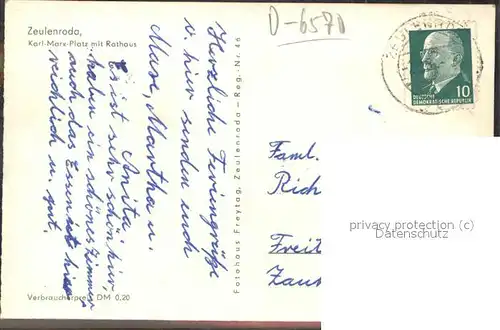 Zeulenroda,
Karl-Marx-Platz mit Rathaus
D-6570
Herzliche Feriengrüße
v. hier senden euch
Muse, Martha u.
Anita.
Es ist sehr schön hier,
haben ein schönes Zimmer
auch das Essen ist hier
reichlich u. gut.
Fotohaus Freytag, Zeulenroda – Reg. Nr. 46
Verbraucherpreis DM 0,20
DEUTSCHE
DEMOKRATISCHE REPUBLIK
10
Faml.
Freit
privacy protection (c)
Datenschutz